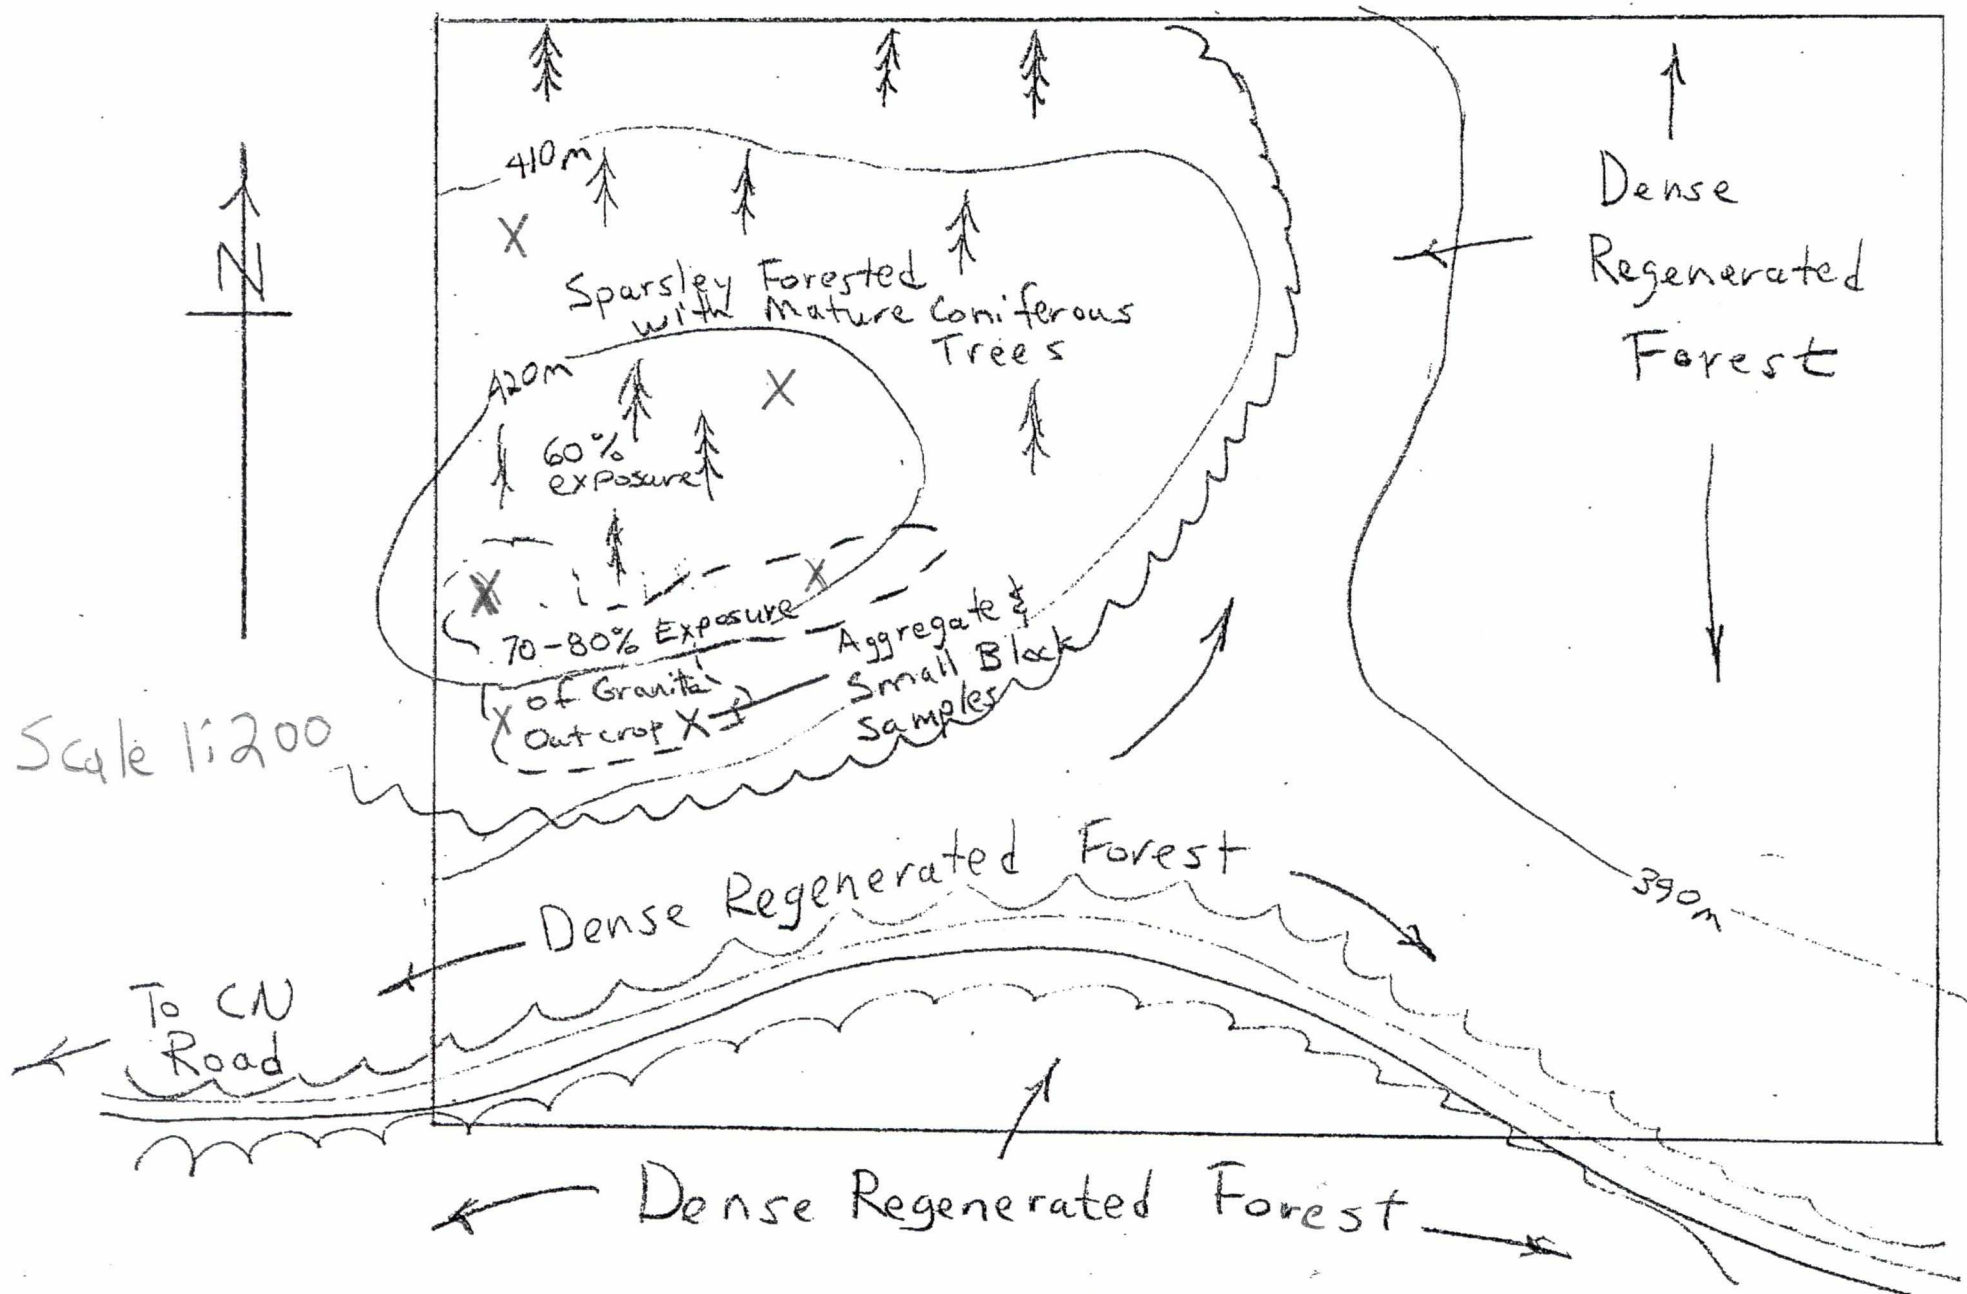 N
410m
Sparsley Forested
with Mature Coniferous
Trees
420m
60%
exposure
70-80% Exposure
of Granite
Outcrop
Aggregate &
Small Block
Samples
Scale 1:200
Dense
Regenerated
Forest
Dense Regenerated Forest
390m
To CN
Road
Dense Regenerated Forest
X
X
X
X
X
X